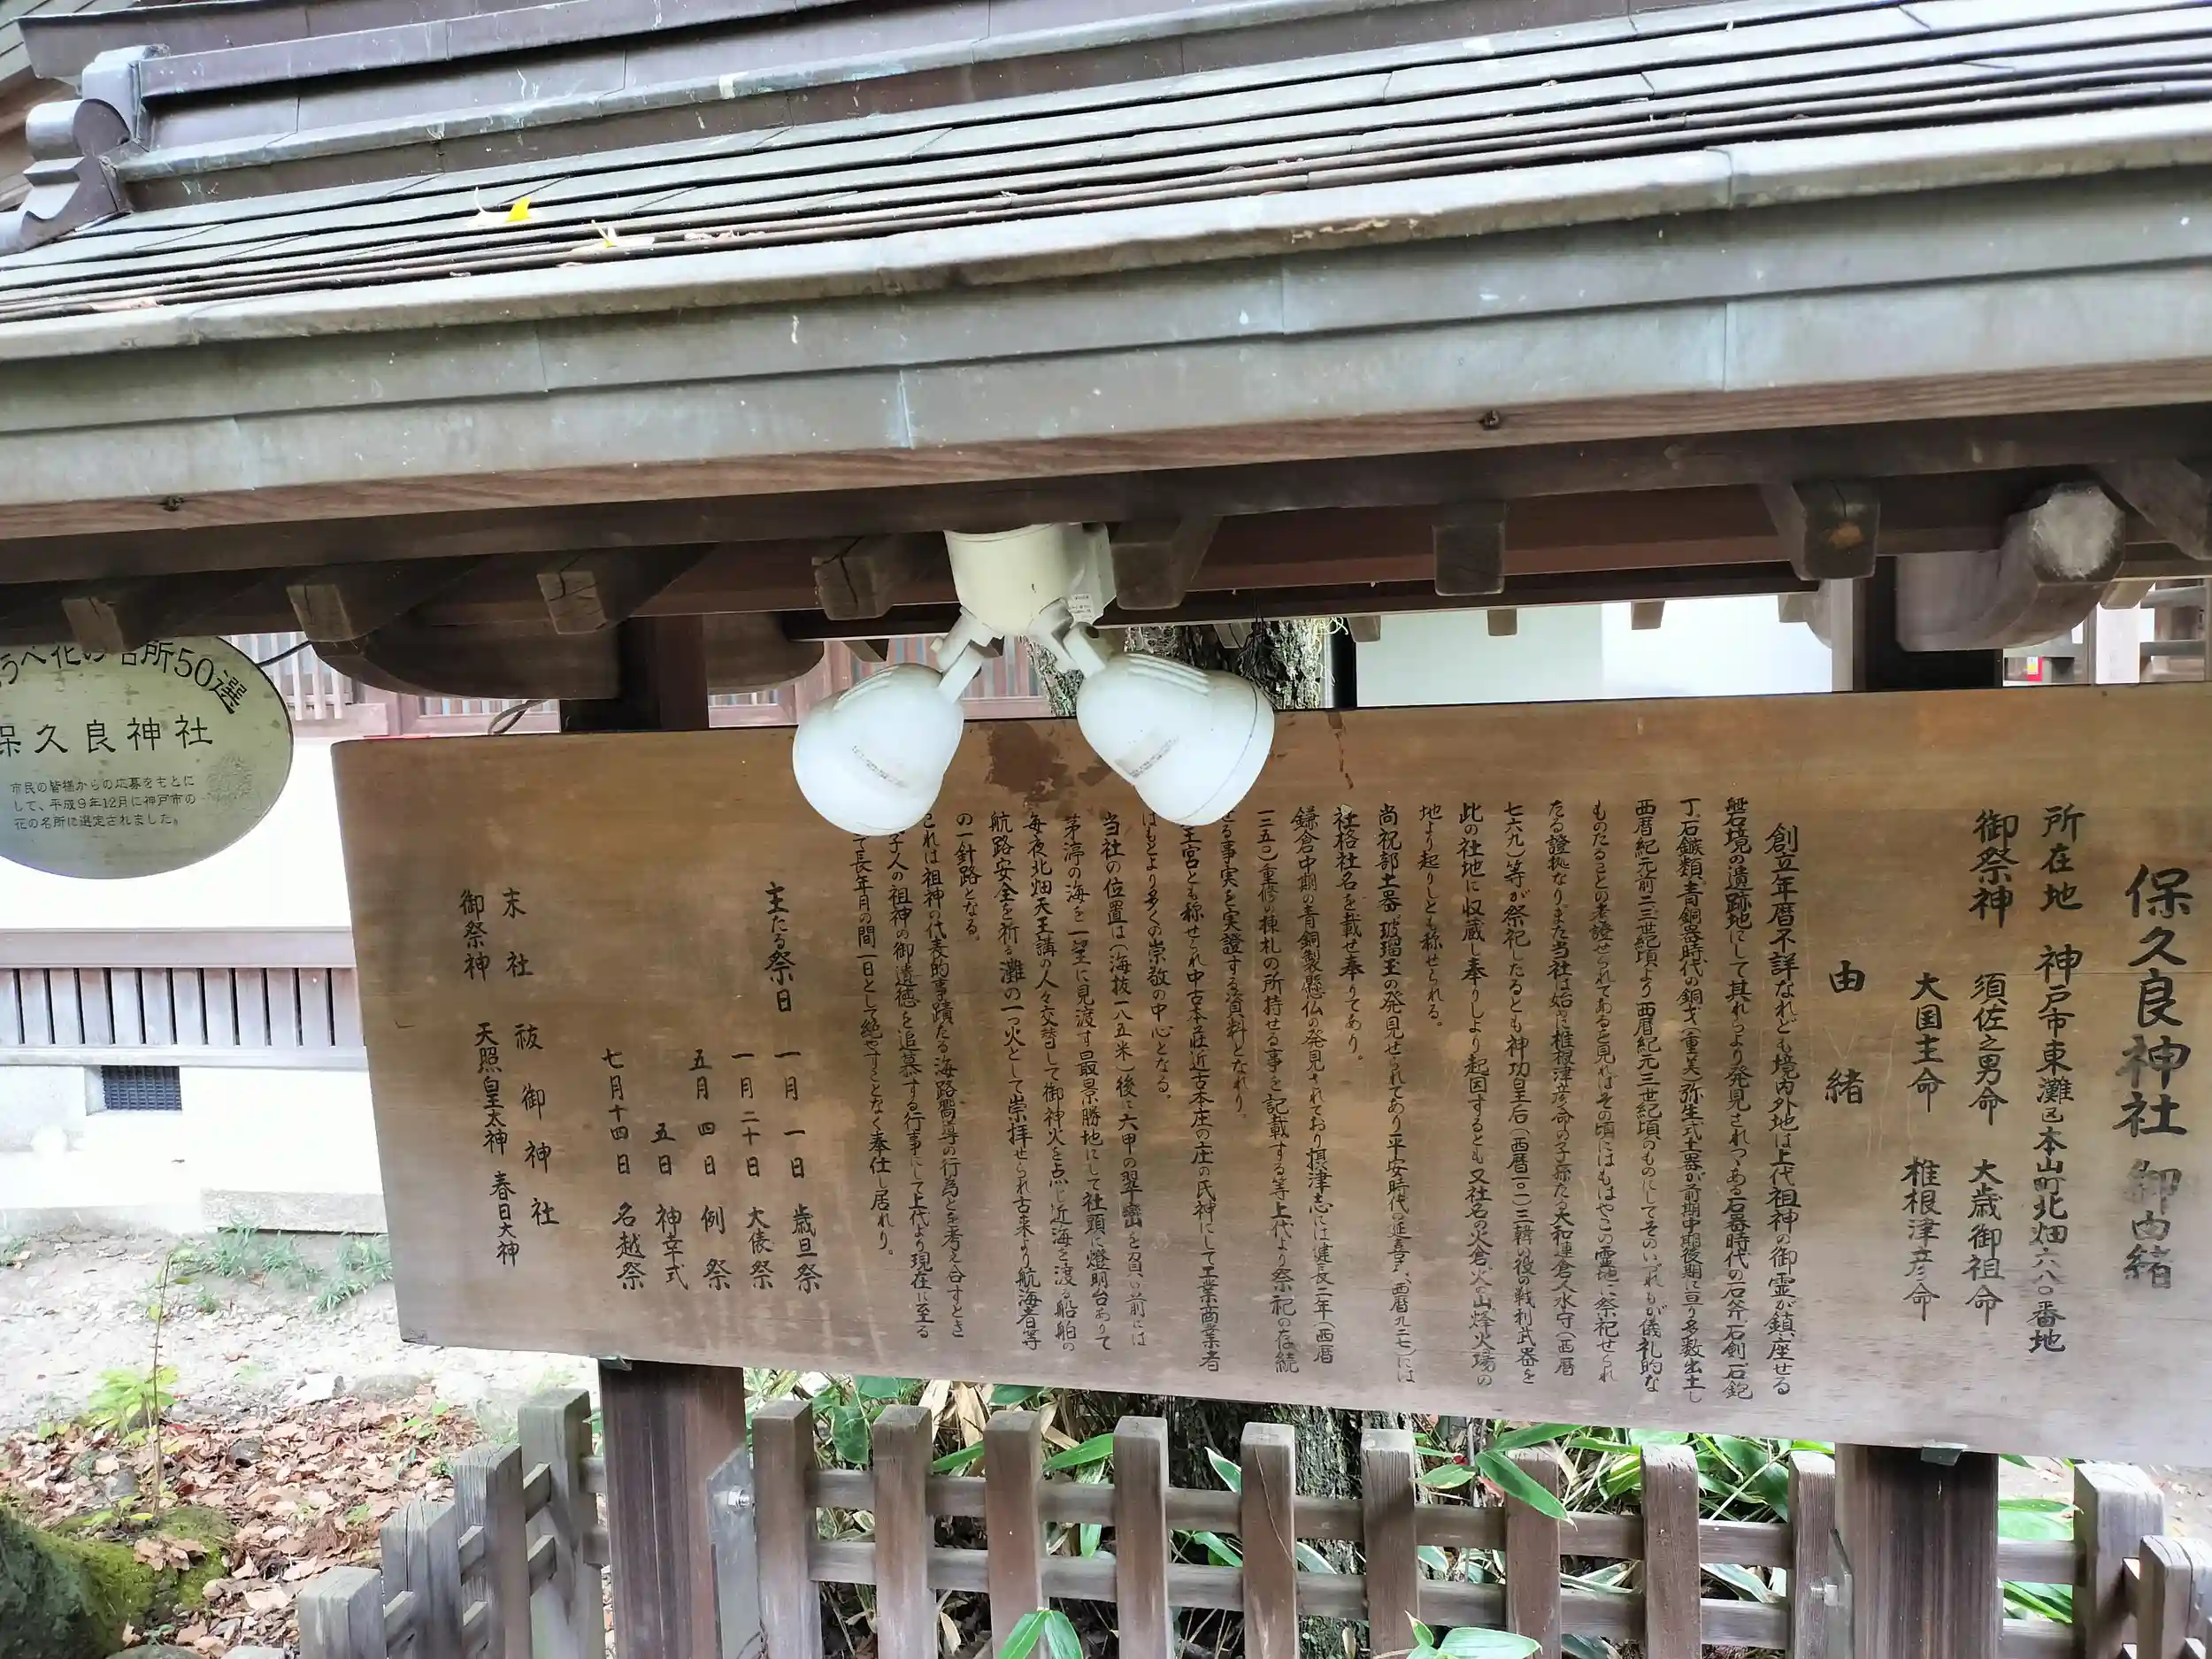 保久良神社御由緒
所在地 神戸市東灘区本山町北畑六八〇番地
御祭神 須佐之男命 大歳御祖命
大国主命 椎根津彦命
由緒
創立年暦不詳なれども境内外地は上代祖神の御霊が鎮座せる
磐石境の遺跡地にして其れらより発見されつゝある石器時代の石斧石剣石鉋
丁石鏃類青銅器時代の銅戈(重美)弥生式土器が前期中期後期に亘り多数出土し
西暦紀元前二三世紀頃より西暦紀元三世紀頃のものにしてそのいづれもが儀礼的な
ものたることの考證せられてあるを見ればその頃にはもはやこの霊地に祭祀せられ
たる證拠なりまた当社は始め椎根津彦命の子孫たる大和連倉人水守(西暦
七六九)等が祭祀したるとも神功皇后(西暦二〇一)三韓の役の戦利武器を
此の社地に収蔵し奉りしより起因するとも又社名の火倉火の山烽火場の
地より起りしとも称せられる。
尚祝部土器 玻瑠玉の発見せられてあり平安時代の延喜式(西暦九二七)には
社格社名を載せ奉りてあり。
鎌倉中期の青銅製懸仏の発見されており摂津志には建長二年(西暦
一二五〇)重修の棟札の所持せる事を記載する等上代より祭祀の存続
せる事実を実證する資料となれり。
王宮とも称せられ中古本荘近古本庄の庄の氏神にして工業商業者
はもとより多くの崇敬の中心となる。
当社の位置は(海抜一八五米)後に六甲の翠巒を負い前には
茅渟の海を一望に見渡す最景勝地にして社頭に燈明台ありて
毎夜北畑天王講の人々交替して御神火を点じ近海を渡る船舶の
航路安全を祈る灘の一つ火として崇拝せられ古来より航海者等
の一針路となる。
これは祖神の代表的事蹟たる海路嚮導の行為とを考え合すとき
子人の祖神の御遺徳を追慕する行事にして上代より現在に至る
て長年月の間一日として絶やすことなく奉仕し居れり。
主たる祭日
一月 一日 歳旦祭
一月 二十日 大俵祭
五月 四日 例祭
五日 神幸式
七月十四日 名越祭
末社 祓御神社
御祭神 天照皇太神 春日大神
うべ花の名所50選
保久良神社
市民の皆様からの応募をもとに
して、平成9年12月に神戸市の
花の名所に選定されました。